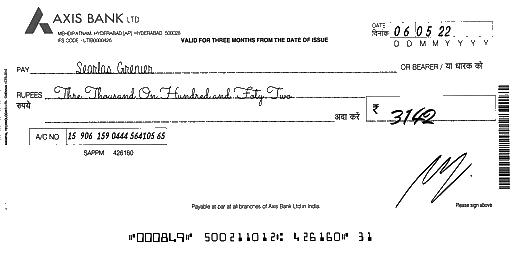 AXIS BANK LTD
MEHDIPATNAM, HYDERABAD [AP] - HYDERABAD 500028
IFS CODE - UTIB0000426
VALID FOR THREE MONTHS FROM THE DATE OF ISSUE
DATE
दिनांक 06 05 22
D D M M Y Y Y Y
PAY Searlas Grenier OR BEARER / या धारक को
RUPEES Thre Thousand On Hundred and Foty Two
रुपये अदा करें ₹ 3142
A/C NO 15 906 159 0444 564105 65
SAPPM 426160
Payable at par at all branches of Axis Bank Ltd in India.
Please sign above
⑈000849⑈ 500211012⑆ 426160⑈ 31